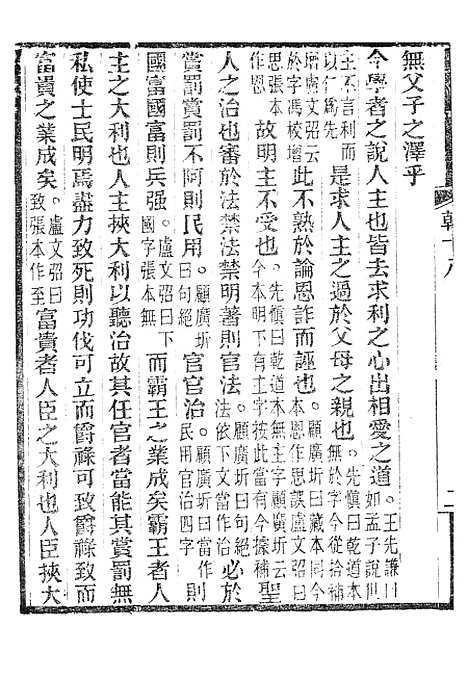 無父子之澤乎
今學者之說人主也皆去求利之心出相愛之道○王先謙曰如孟子說世
主不言利而以仁爲先是求人主之過於父母之親也○先愼曰乾道本無於字今從拾補
增盧文弨云於字馮校增此不熟於論恩詐而誣也○顧廣圻曰藏本同今本恩作思誤盧文弨曰
思張本作恩故明主不受也○先愼曰乾道本無主字顧廣圻云今本明下有主字按此當有今據補聖
人之治也審於法禁法禁明著則官法○顧廣圻曰句絕法依下文當作治必於
賞罰賞罰不阿則民用○顧廣圻曰句絕官官治○顧廣圻曰當作民用官治四字則
國富國富則兵强○盧文弨曰下國字張本無而霸王之業成矣霸王者人
主之大利也人主挾大利以聽治故其任官者當能其賞罰無
私使士民明焉盡力致死則功伐可立而爵祿可致爵祿致而
富貴之業成矣○盧文弨曰致張本作至富貴者人臣之大利也人臣挾大
韓十八
二